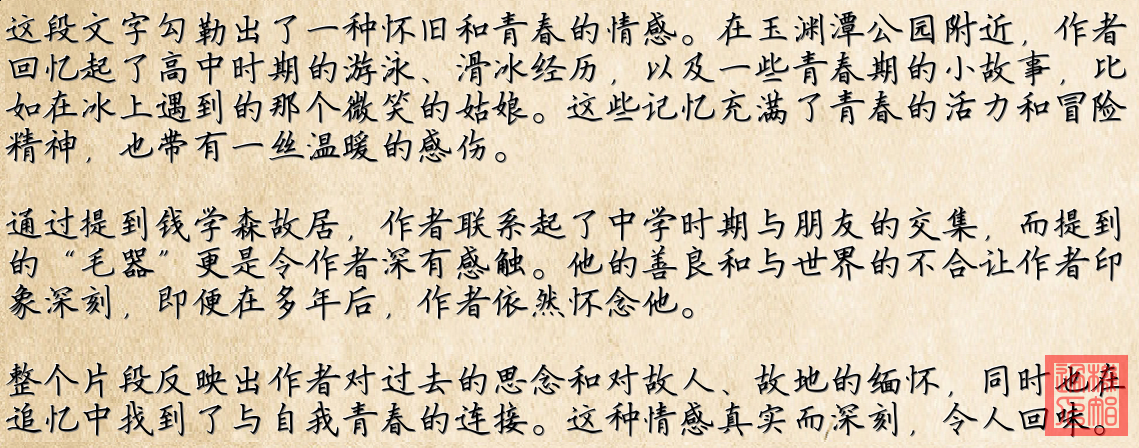 这段文字勾勒出了一种怀旧和青春的情感。在玉渊潭公园附近，作者
回忆起了高中时期的游泳、滑冰经历，以及一些青春期的小故事，比
如在冰上遇到的那个微笑的姑娘。这些记忆充满了青春的活力和冒险
精神，也带有一丝温暖的感伤。
通过提到钱学森故居，作者联系起了中学时期与朋友的交集，而提到
的“毛器”更是令作者深有感触。他的善良和与世界的不合让作者印
象深刻，即便在多年后，作者依然怀念他。
整个片段反映出作者对过去的思念和对故人、故地的缅怀，同时也在
追忆中找到了与自我青春的连接。这种情感真实而深刻，令人回味。